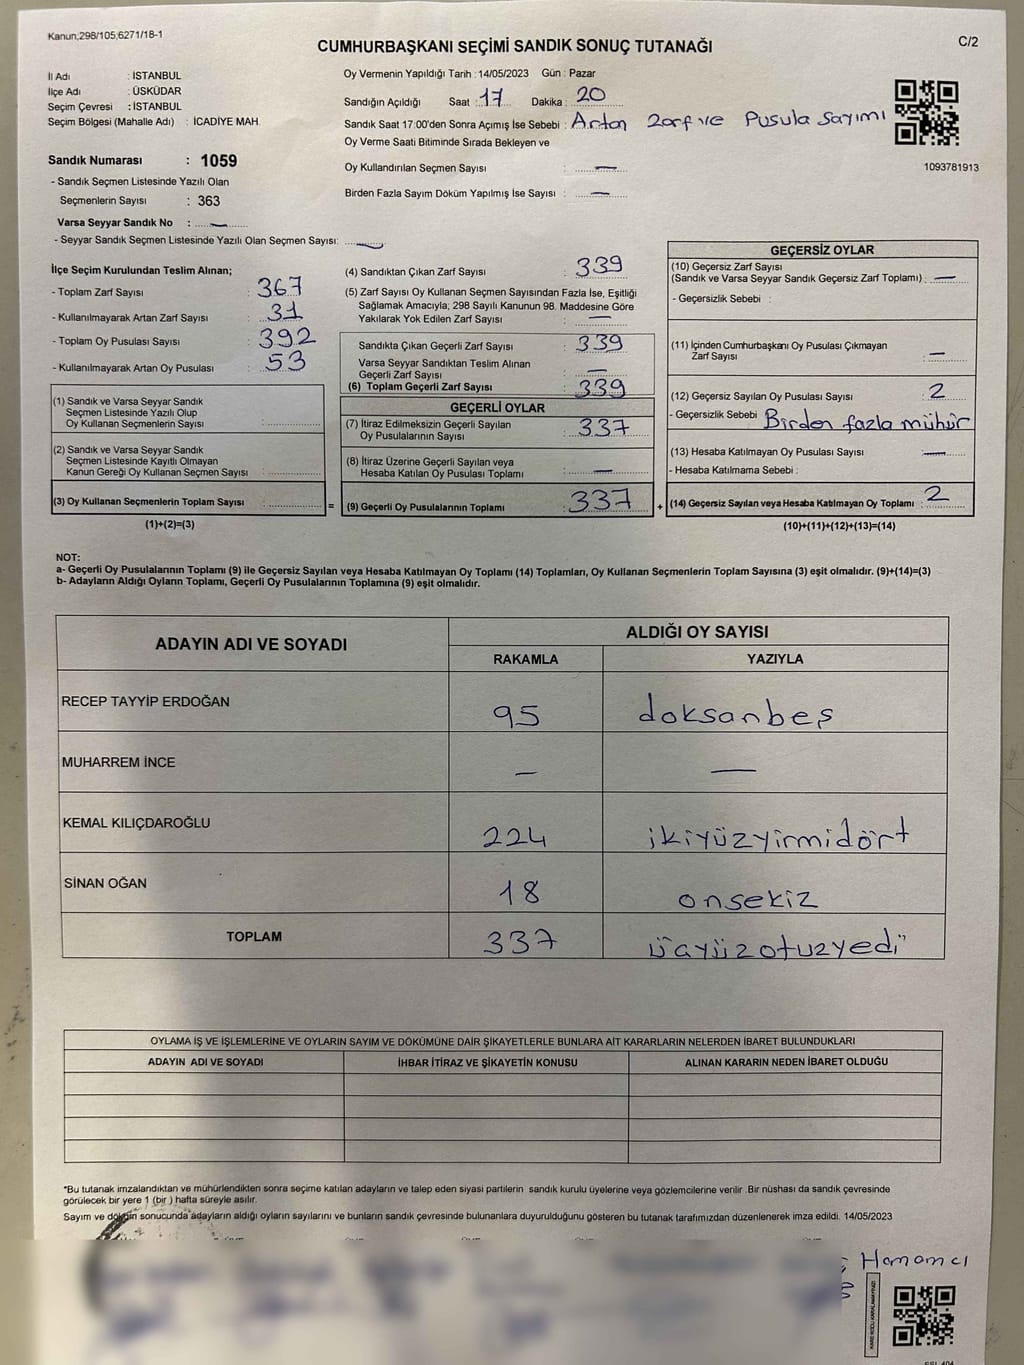 Kanun;298/105;6271/18-1
CUMHURBAŞKANI SEÇİMİ SANDIK SONUÇ TUTANAĞI
C/2
İl Adı : İSTANBUL
İlçe Adı : ÜSKÜDAR
Seçim Çevresi : İSTANBUL
Seçim Bölgesi (Mahalle Adı) : İCADİYE MAH.
Oy Vermenin Yapıldığı Tarih : 14/05/2023 Gün : Pazar
Sandığın Açıldığı Saat : 17 Dakika : 20
Sandık Saat 17:00'den Sonra Açımış İse Sebebi : Artan Zarf ve Pusula Sayımı
Oy Verme Saati Bitiminde Sırada Bekleyen ve
Oy Kullandırılan Seçmen Sayısı : —
Birden Fazla Sayım Döküm Yapılmış İse Sayısı : —
1093781913
Sandık Numarası : 1059
- Sandık Seçmen Listesinde Yazılı Olan
Seçmenlerin Sayısı : 363
Varsa Seyyar Sandık No : —
- Seyyar Sandık Seçmen Listesinde Yazılı Olan Seçmen Sayısı: —
İlçe Seçim Kurulundan Teslim Alınan;
- Toplam Zarf Sayısı : 367
- Kullanılmayarak Artan Zarf Sayısı : 31
- Toplam Oy Pusulası Sayısı : 392
- Kullanılmayarak Artan Oy Pusulası : 53
(1) Sandık ve Varsa Seyyar Sandık
Seçmen Listesinde Yazılı Olup
Oy Kullanan Seçmenlerin Sayısı :
(2) Sandık ve Varsa Seyyar Sandık
Seçmen Listesinde Kayıtlı Olmayan
Kanun Gereği Oy Kullanan Seçmen Sayısı :
(3) Oy Kullanan Seçmenlerin Toplam Sayısı :
(1)+(2)=(3)
(4) Sandıktan Çıkan Zarf Sayısı : 339
(5) Zarf Sayısı Oy Kullanan Seçmen Sayısından Fazla İse, Eşitliği
Sağlamak Amacıyla; 298 Sayılı Kanunun 98. Maddesine Göre
Yakılarak Yok Edilen Zarf Sayısı : —
Sandıkta Çıkan Geçerli Zarf Sayısı : 339
Varsa Seyyar Sandıktan Teslim Alınan
Geçerli Zarf Sayısı : —
(6) Toplam Geçerli Zarf Sayısı : 339
GEÇERLİ OYLAR
(7) İtiraz Edilmeksizin Geçerli Sayılan
Oy Pusulalarının Sayısı : 337
(8) İtiraz Üzerine Geçerli Sayılan veya
Hesaba Katılan Oy Pusulası Toplamı : —
= (9) Geçerli Oy Pusulalarının Toplamı : 337
GEÇERSİZ OYLAR
(10) Geçersiz Zarf Sayısı
(Sandık ve Varsa Seyyar Sandık Geçersiz Zarf Toplamı) : —
- Geçersizlik Sebebi :
(11) İçinden Cumhurbaşkanı Oy Pusulası Çıkmayan
Zarf Sayısı : —
(12) Geçersiz Sayılan Oy Pusulası Sayısı : 2
- Geçersizlik Sebebi : Birden fazla mühür
(13) Hesaba Katılmayan Oy Pusulası Sayısı : —
- Hesaba Katılmama Sebebi :
+ (14) Geçersiz Sayılan veya Hesaba Katılmayan Oy Toplamı : 2
(10)+(11)+(12)+(13)=(14)
NOT:
a- Geçerli Oy Pusulalarının Toplamı (9) ile Geçersiz Sayılan veya Hesaba Katılmayan Oy Toplamı (14) Toplamları, Oy Kullanan Seçmenlerin Toplam Sayısına (3) eşit olmalıdır. (9)+(14)=(3)
b- Adayların Aldığı Oyların Toplamı, Geçerli Oy Pusulalarının Toplamına (9) eşit olmalıdır.
ADAYIN ADI VE SOYADI
ALDIĞI OY SAYISI
RAKAMLA YAZIYLA
RECEP TAYYİP ERDOĞAN 95 doksanbeş
MUHARREM İNCE — —
KEMAL KILIÇDAROĞLU 224 ikiyüzyirmidört
SİNAN OĞAN 18 onsekiz
TOPLAM 337 üçyüzotuzyedi
OYLAMA İŞ VE İŞLEMLERİNE VE OYLARIN SAYIM VE DÖKÜMÜNE DAİR ŞİKAYETLERLE BUNLARA AİT KARARLARIN NELERDEN İBARET BULUNDUKLARI
ADAYIN ADI VE SOYADI İHBAR İTİRAZ VE ŞİKAYETİN KONUSU ALINAN KARARIN NEDEN İBARET OLDUĞU
*Bu tutanak imzalandıktan ve mühürlendikten sonra seçime katılan adayların ve talep eden siyasi partilerin sandık kurulu üyelerine veya gözlemcilerine verilir .Bir nüshası da sandık çevresinde
görülecek bir yere 1 (bir ) hafta süreyle asılır.
Sayım ve döküm sonucunda adayların aldığı oyların sayılarını ve bunların sandık çevresinde bulunanlara duyurulduğunu gösteren bu tutanak tarafımızdan düzenlenerek imza edildi. 14/05/2023
Hamamcı
KARE KODU KARALAMAYINIZ!